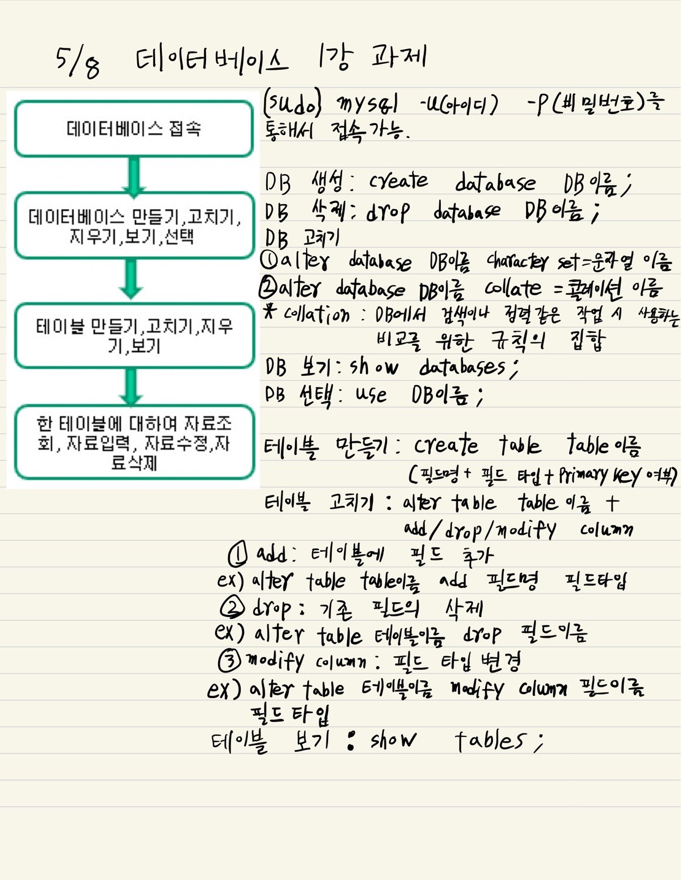 5/8 데이터베이스 1강 과제
데이터베이스 접속
데이터베이스 만들기,고치기,
지우기,보기,선택
테이블 만들기,고치기,지우
기,보기
한 테이블에 대하여 자료조
회, 자료입력, 자료수정,자
료삭제
(sudo) mysql -u(아이디) -P(비밀번호)를
통해서 접속가능.
DB 생성: create database DB이름;
DB 삭제: drop database DB이름;
DB 고치기
① alter database DB이름 character set=문자열 이름
② alter database DB이름 collate = 콜레이션 이름
* collation: DB에서 검색이나 정렬같은 작업 시 사용하는
비교를 위한 규칙의 집합
DB 보기: show databases;
DB 선택: use DB이름;
테이블 만들기: create table table이름
(필드명+필드 타입+Primary Key 여부)
테이블 고치기: alter table table이름 +
add/drop/modify column
① add: 테이블에 필드 추가
ex) alter table table이름 add 필드명 필드타입
② drop: 기존 필드의 삭제
ex) alter table 테이블이름 drop 필드이름
③ modify column: 필드 타입 변경
ex) alter table 테이블이름 modify column 필드이름
필드 타입
테이블 보기: show tables;